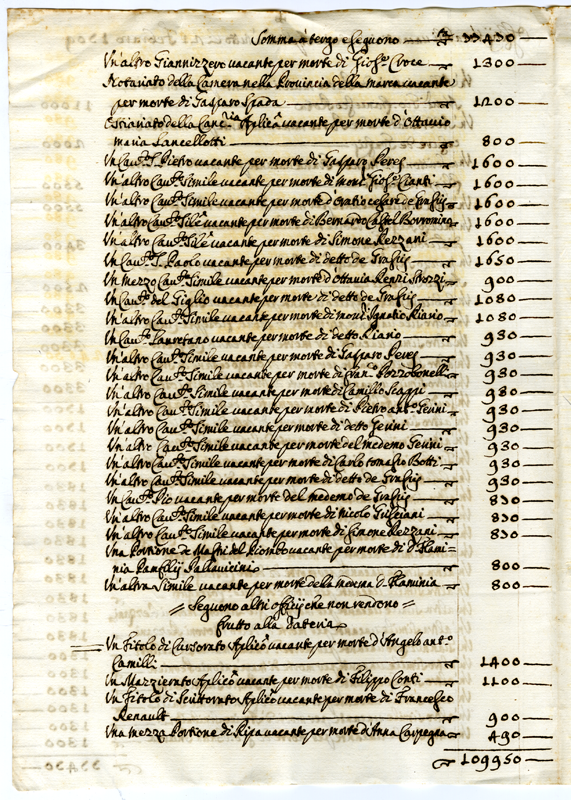 Somma à tergo e seguono — 73430
Un'altro Giannizzero vacante per morte di Gioſ.e Croce — 1300
Notariato della Camera nella Provincia della marca vacante
per morte di Gasparo Spada — 1200
della Canc.ria Aplic.o vacante per morte d'Ottavio
maria Lancellotti — 800
Un Cau.to S. Pietro vacante per morte di Gasparo Peres — 1600
Un'altro Cau.to Simile vacante per morte di mons.r Gioſ.e Cianti — 1600
Un'altro Cau.to Simile vacante per morte d'Oratio cesare de Graſsis — 1600
Un'altro Cau.to Sil.e vacante per morte di Bernardo Castel Borromino — 1600
Un'altro Cau.to Sil.e vacante per morte di Simone Rezzani — 1600
Un Cau.to S. Paolo vacante per morte di detto de Graſsis — 1650
Un mezzo Cau.to Simile vacante per morte d'Ottavia Renzi Strozzi — 900
Un Cau.to del Giglio vacante per morte di detto de Graſsis — 1080
Un'altro Cau.to Simile vacante per morte di mons.r Ignatio Riario — 1080
Un Cau.to Lauretano vacante per morte di detto Riario — 930
Un'altro Cau.to Simile vacante per morte di Gasparo Peres — 930
Un'altro Cau.to Simile vacante per morte di Fran.co Pozzobonelli — 930
Un'altro Cau.to Simile vacante per morte di Camillo Scappi — 980
Un'altro Cau.to Simile vacante per morte di Pietro ant.o Gerini — 930
Un'altro Cau.to Simile vacante per morte di detto Gerini — 930
Un'altro Cau.to Simile vacante per morte del medemo Gerini — 930
Un'altro Cau.to Simile vacante per morte di Carlo tomaso Botti — 930
Un'altro Cau.to Simile vacante per morte di detto de Graſsis — 930
Un Cau.to Pio vacante per morte del medemo de Graſsis — 830
Un'altro Cau.to Simile vacante per morte di nicolo Giuliani — 830
Un'altro Cau.to Simile vacante per morte di Simone Rezzani — 830
Una Portione de Maſtri del Piombo vacante per morte di D. Flami-
nia Panfilij Pallavicini — 800
Un'altra Simile vacante per morte della medema D. Flaminia — 800
// Seguono altri offitij che non rendono //
frutto alla Dataria
Un Titolo di Cursorato Aplic.o vacante per morte d'Angelo ant.o
Camilli — 1400
Un Mazzierato Aplic.o vacante per morte di Filippo Conti — 1100
Un Titolo di Scuttorato Aplic.o vacante per morte di Francesco
Renault — 900
Una mezza Portione di Ripa vacante per morte di Anna Carpegna — 490
109950